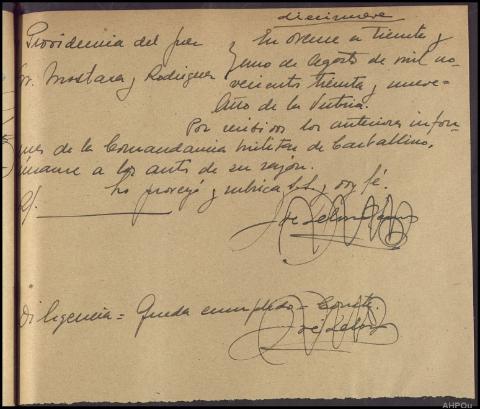 diecinueve
Providencia del juez
Sr. Mostaza y Rodríguez
En Orense a treinta y
uno de agosto de mil no-
vecientos treinta y nueve=
Año de la Victoria.
Por recibidos los anteriores infor-
mes de la Comandancia Militar de Carballino,
únanse a los autos de su razón.
Lo proveyó y rubrica S.S., doy fé.
Diligencia = Queda cumplido = Conste,
AHPOu